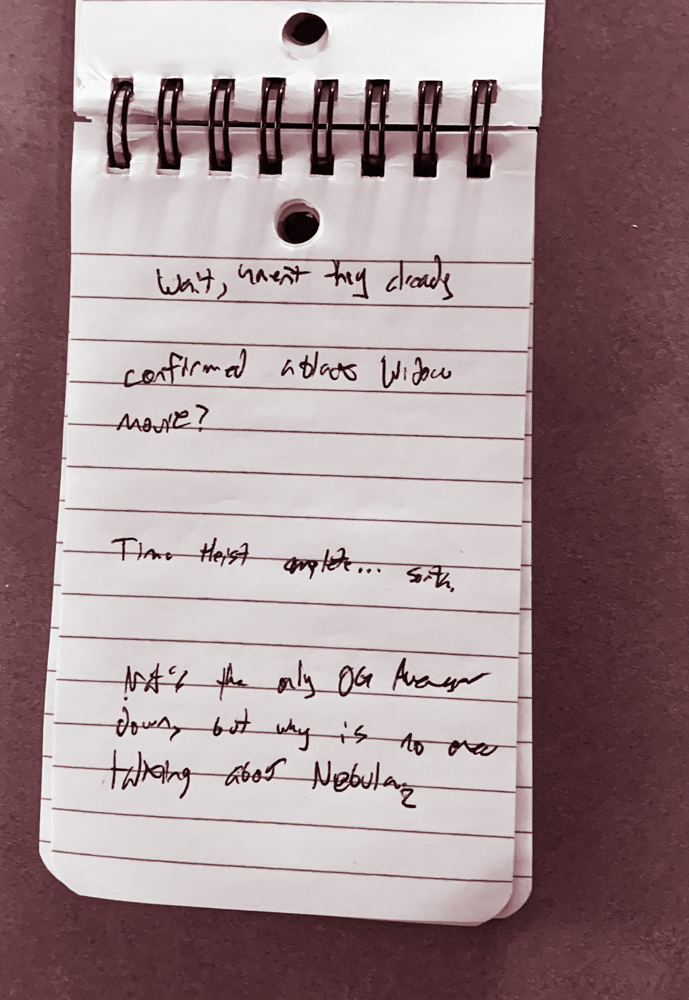 Wait, weren't they already
confirmed a Black Widow
movie?
Time Heist complete... sorta.
Nat's the only OG Avenger
down, but why is no one
talking about Nebula?